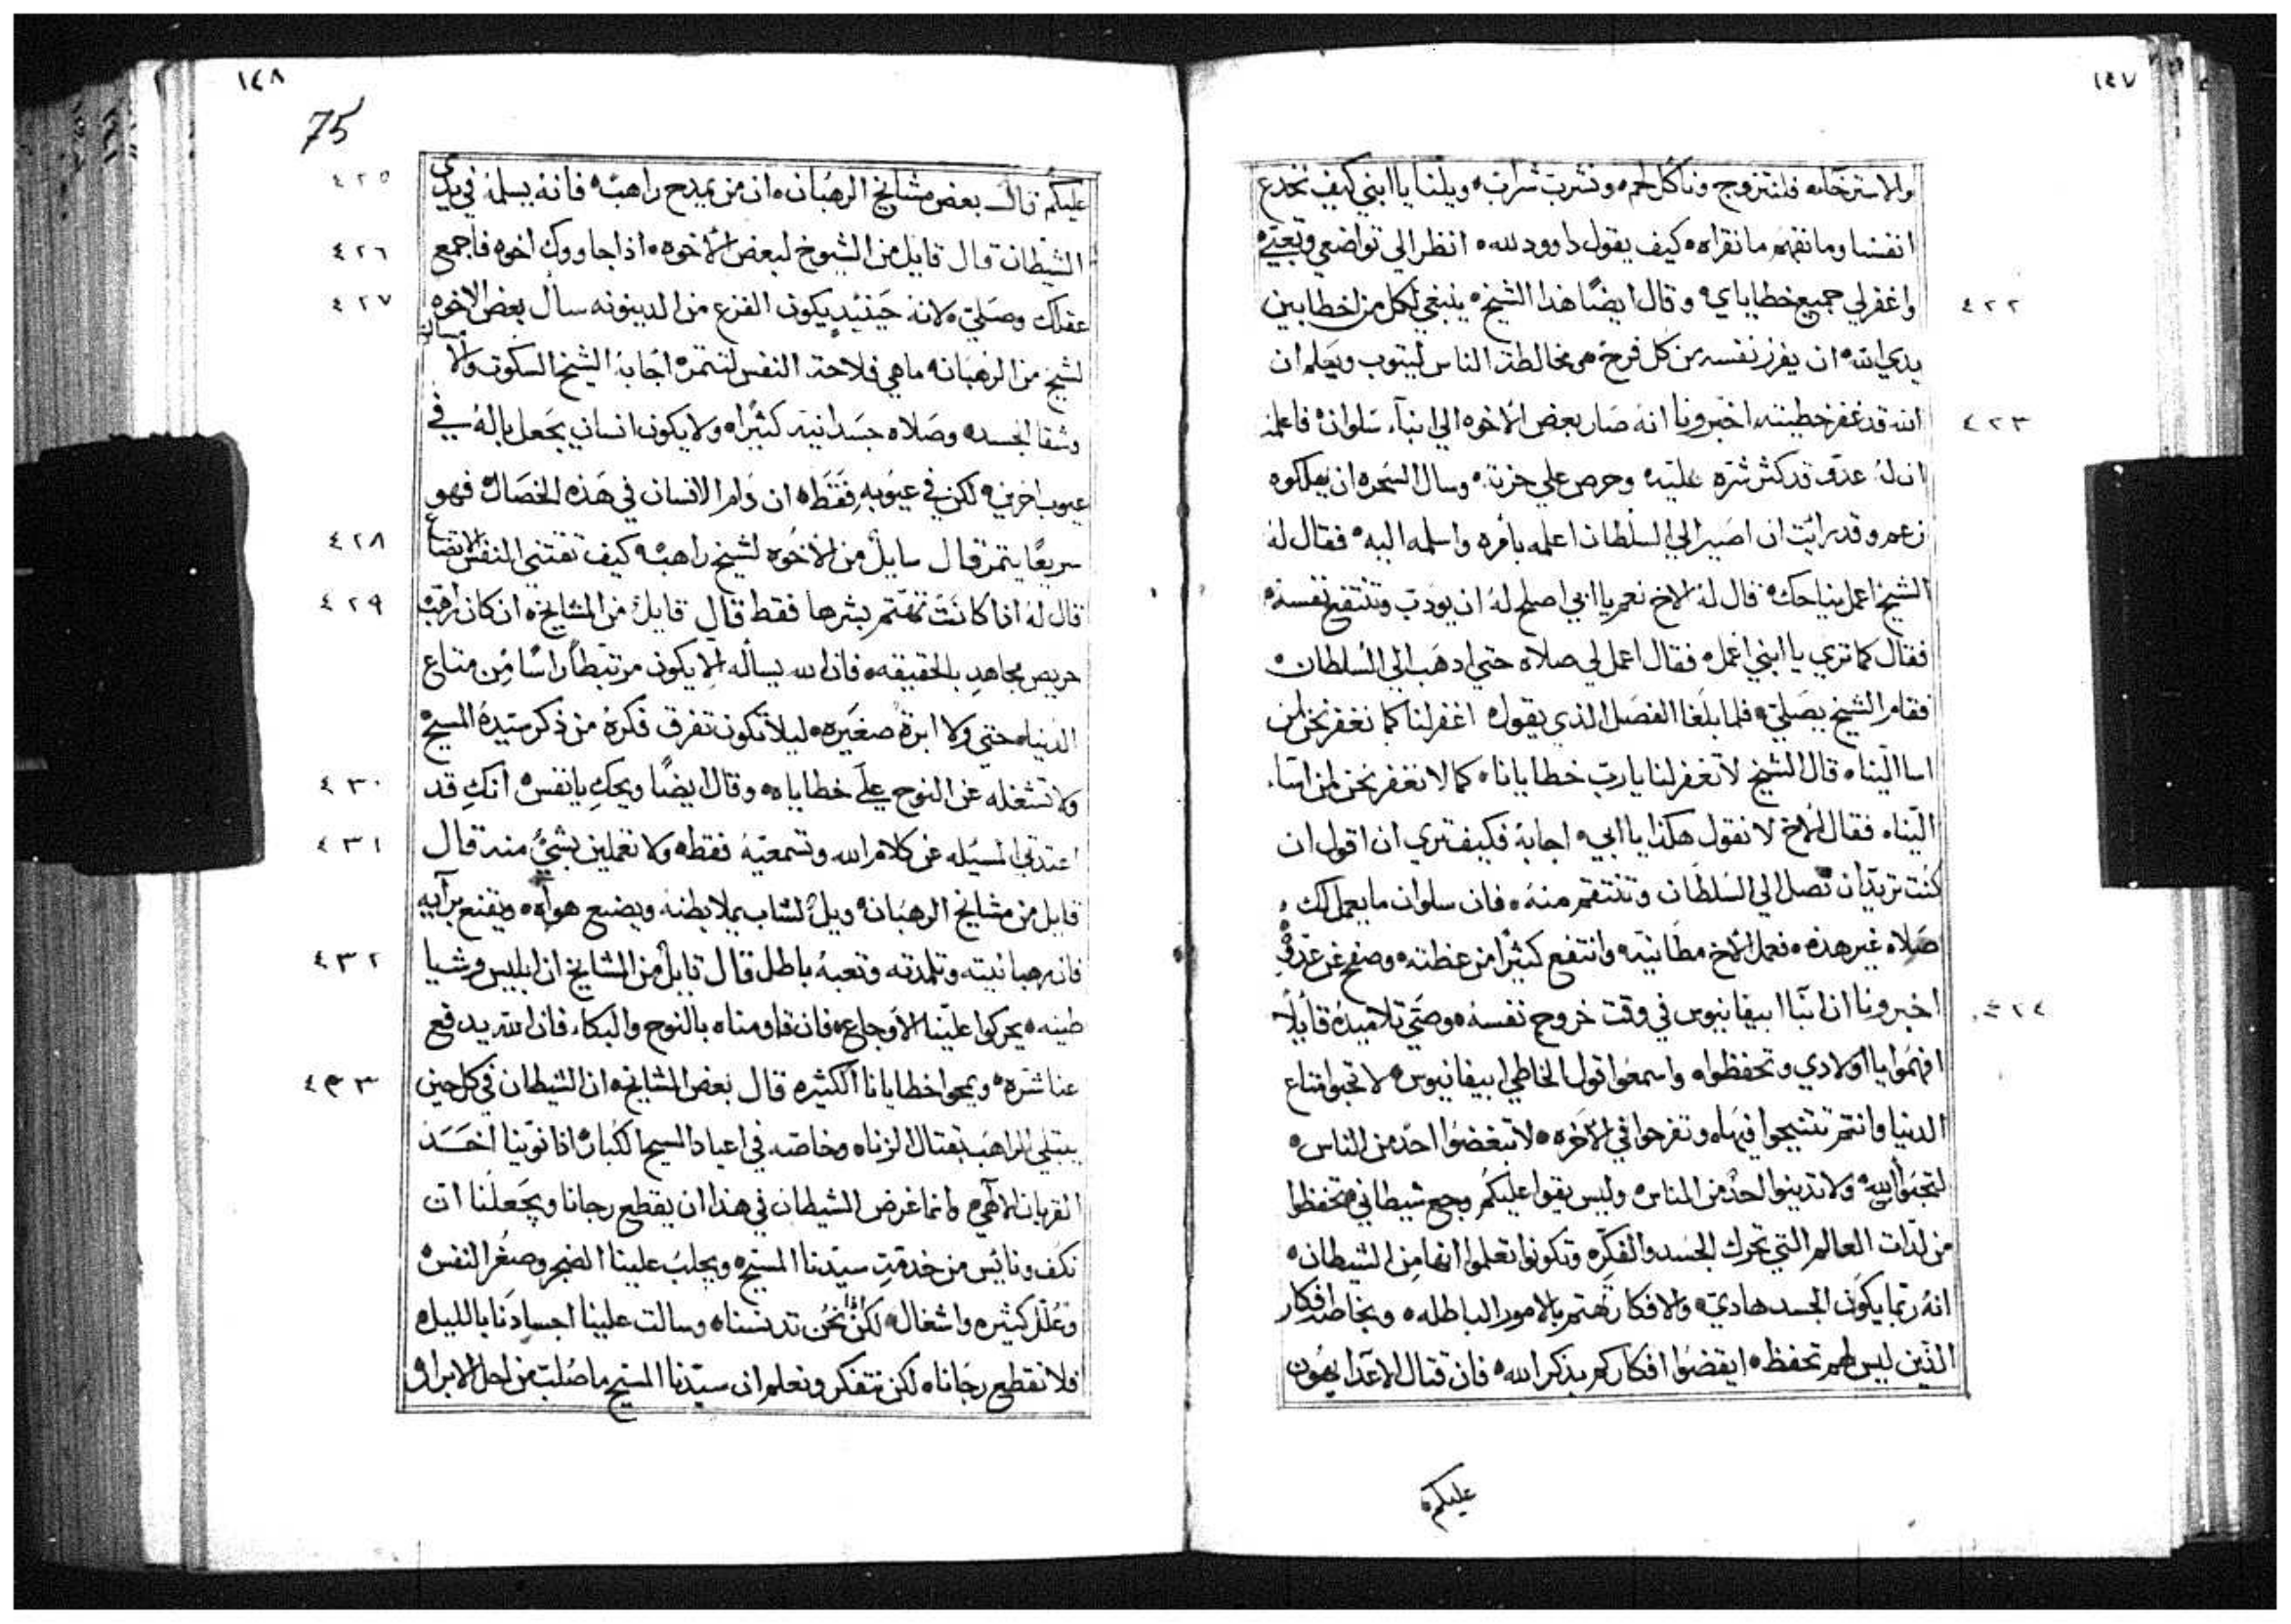 ١٤٧
والاسترخاه فلنتزوج وناكل لحم ونشرب شراب ويلنا يا ابني كيف نخدع
انفسنا وما نفهم ما نقراه كيف يقول داوود لله انظر الي تواضعي وتعبي
٤٢٢ واغفر لي جميع خطاياي وقال ايضًا هذا الشيخ ينبغي لكل من اخطا بين
يدي الله ان يفرز نفسه من كل فرح مخالطة الناس ليتوب ويعلم ان
٤٢٣ الله قد غفر خطيته اخبرونا انه صار بعض الاخوه الي انبا سلوان فاعلمه
ان له عدو قد كثر شره عليه وحرص علي حزنه وسال السحره ان يهلكوه
زعم وقد رايت ان اصير الي السلطان اعلمه بامره واسلمه اليه فقال له
الشيخ اعمل بناحك قال له الاخ نعم يا ابي اصلح له ان يودب وتنتفع نفسه
فقال كما تري يا ابني اعمل فقال اعمل لي صلاه حتي ادهب الي السلطان
فقام الشيخ يصلي فلما بلغا الفصل الذي يقول اغفر لنا كما نغفر نحن لمن
اسا الينا قال الشيخ لا تغفر لنا يارب خطايانا كما لا نغفر نحن لمن اسا
الينا فقال الاخ لا نقول هكذا يا ابي اجابه فكيف تري ان اقول ان
كنت تريد ان تصل الي السلطان وتنتقم منه فان سلوان ما يعمل لك
صلاه غير هذه فعمل الاخ مطانيه وانتفع كثيرًا من عظته وصفح عن عدوه
٤٢٤ اخبرونا ان انبا ابيفانيوس في وقت خروج نفسه وصي تلاميده قايلًا
افهموا يا اولادي وتحفظوا واسمعوا قول الخاطي ابيفانيوس لا تحبوا متاع
الدنيا وانتم تتنيحوا فيها وتفرحوا في الاخره لا تبغضوا احد من الناس
لتحبوا الله ولا تدينوا احد من الناس وليس يقوا عليكم وجع شيطاني تحفظوا
من لدات العالم التي تحرك الجسد والفكره وتكونوا تعلموا انها من الشيطان
انه ربما يكون الجسد هادي والافكار تهتم بالامور الباطله وبخاصه افكار
الذين ليس لهم تحفظ ايقضوا افكاركم بذكر الله فان قتال الاعدا يهون
عليكم
١٤٨
75
٤٢٥ عليكم قال بعض مشايخ الرهبان ان من يمدح راهب فانه يسلمه في يدي
٤٢٦ الشيطان قال قايل من الشيوخ لبعض الاخوه اذا جاووك اخوه فاجمع
٤٢٧ عقلك وصلي لانه حينيد يكون الفزع من الدينونه سال بعض الاخوه
لشيخ من الرهبان ما هي فلاحة النفس لتتمر اجابه الشيخ السكوت والامساك
وشقا الجسد وصلاه جسدانيه كثيرًا ولا يكون انسان يجعل باله في
عيوب اخرين لكن في عيوبه فقط ان دام الانسان في هذه الخصال فهو
٤٢٨ سريعًا يتمر قال سايل من الاخوه لشيخ راهب كيف تقتني النفس الاتضاع
٤٢٩ قال له اذا كانت تهتم بشرها فقط قال قايل من المشايخ ان كان راهب
حريص مجاهد بالحقيقه فان الله يساله الا يكون مرتبطًا راسًا من متاع
الدنيا حتي ولا ابرة صغيره ليلا تكون تفرق فكره من ذكر سيده المسيح
٤٣٠ ولا تشغله عن النوح علي خطاياه وقال ايضًا ويحك يا نفس انك قد
٤٣١ اعتدتي المسيله عن كلام الله وتسمعيه فقط ولا تعملين بشي منه قال
قايل من مشايخ الرهبان ويل لشاب يملا بطنه ويضيع هواه ويقنع برآيه
٤٣٢ فان رهبانيته وتلمدته وتعبه باطل قال قايل من المشايخ ان ابليس وشيا
طينه يحركوا علينا الاوجاع فان قاومناه بالنوح والبكا فان الله يدفع
٤٣٣ عنا شره ويمحوا خطايانا الكثيره قال بعض المشايخ ان الشيطان في كل حين
يبتلي الراهب بقتال الزنا وخاصه في اعياد المسيح الكبار اذا نوينا اخد
القربان الالهي وانما غرض الشيطان في هذا ان يقطع رجانا ويجعلنا ان
نكف ونايس من خدمت سيدنا المسيح ويجلب علينا الضجر وصغر النفس
وعلل كثيره واشغال لكن نحن تدنسنا وسالت علينا اجسادنا بالليل
فلا نقطع رجانا لكن نتفكر ونعلم ان سيدنا المسيح ما صلب من اجل الابرار